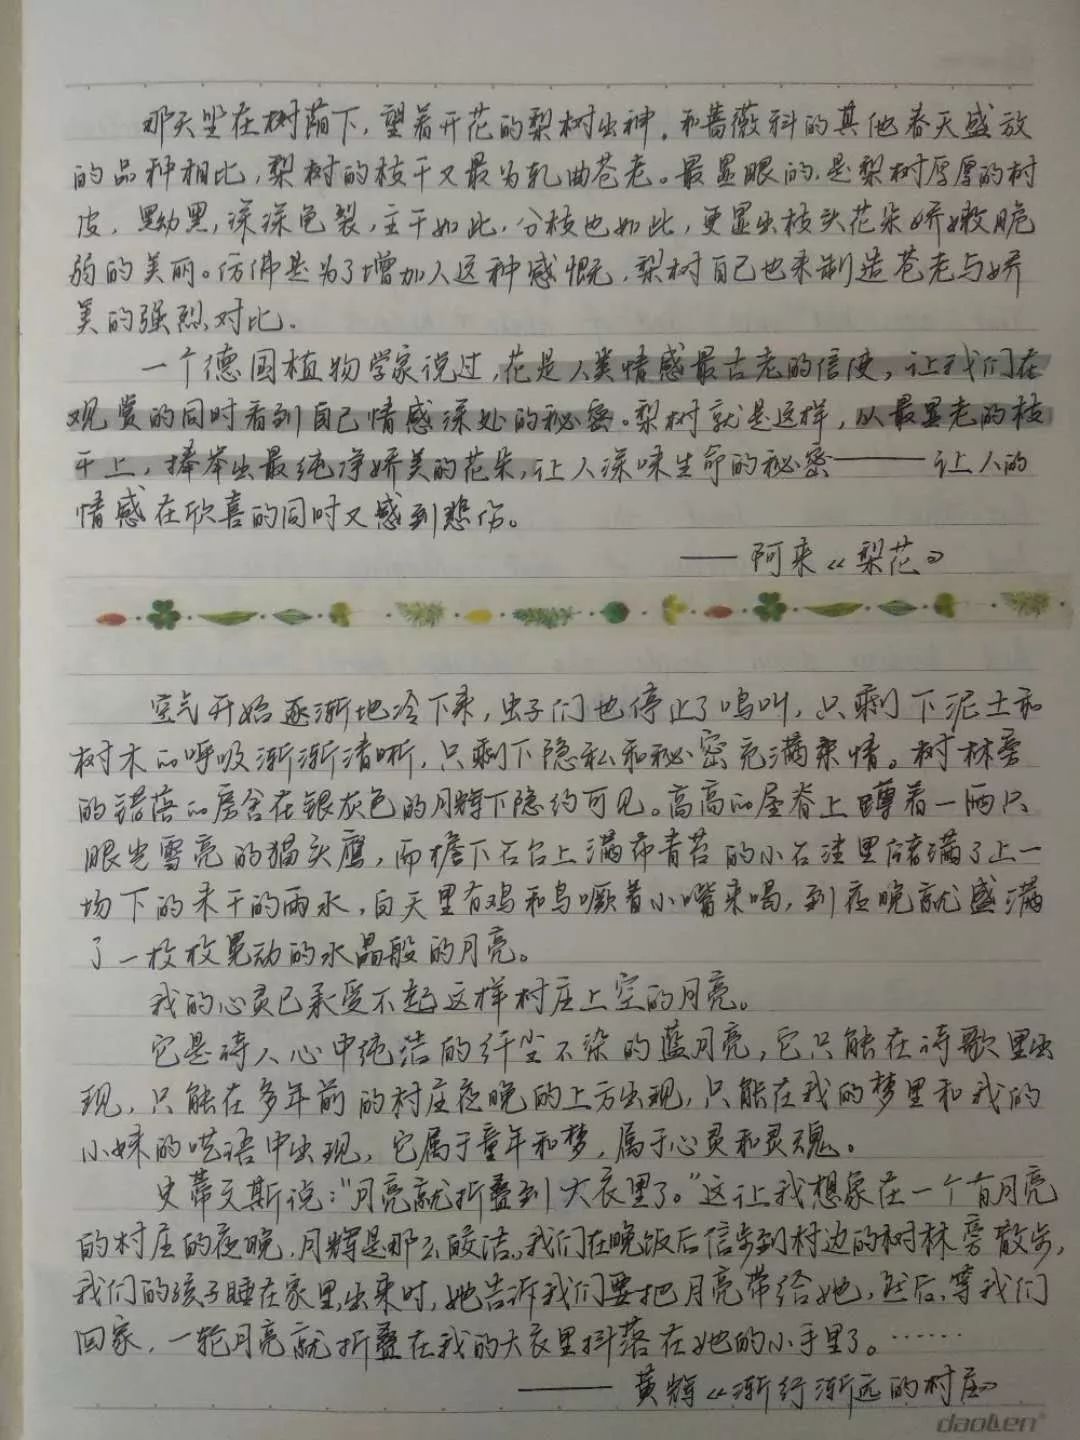 那天坐在树荫下，望着开花的梨树出神。和蔷薇科的其他春天盛放
的品种相比，梨树的枝干又最为虬曲苍老。最显眼的，是梨树厚厚的树
皮，黝黑，深深龟裂，主干如此，分枝也如此，更显出枝头花朵娇嫩脆
弱的美丽。仿佛是为了增加人这种感慨，梨树自己也来制造苍老与娇
美的强烈对比。
一个德国植物学家说过，花是人类情感最古老的信使，让我们在
观赏的同时看到自己情感深处的秘密。梨树就是这样，从最显老的枝
干上，捧举出最纯净娇美的花朵，让人深味生命的秘密——让人的
情感在欣喜的同时又感到悲伤。
——阿来《梨花》
空气开始逐渐地冷下来，虫子们也停止了鸣叫，只剩下泥土和
树木的呼吸渐渐清晰，只剩下隐私和秘密充满柔情。树林旁
的错落的房舍在银灰色的月辉下隐约可见。高高的屋脊上蹲着一两只
眼光雪亮的猫头鹰，而檐下石台上满布青苔的小石洼里储满了上一
场下的未干的雨水，白天里有鸡和鸟噘着小嘴来喝，到夜晚就盛满
了一枚枚晃动的水晶般的月亮。
我的心灵已承受不起这样村庄上空的月亮。
它是诗人心中纯洁的纤尘不染的蓝月亮，它只能在诗歌里出
现，只能在多年前的村庄夜晚的上方出现，只能在我的梦里和我的
小妹的呓语中出现，它属于童年和梦，属于心灵和灵魂。
史蒂文斯说：“月亮就折叠到大衣里了。”这让我想象在一个有月亮
的村庄的夜晚，月辉是那么皎洁。我们在晚饭后信步到村边的树林旁散步，
我们的孩子睡在家里，出来时，她告诉我们要把月亮带给她，然后，等我们
回家，一轮月亮就折叠在我的大衣里抖落在她的小手里了。……
——黄辉《渐行渐远的村庄》
daolen